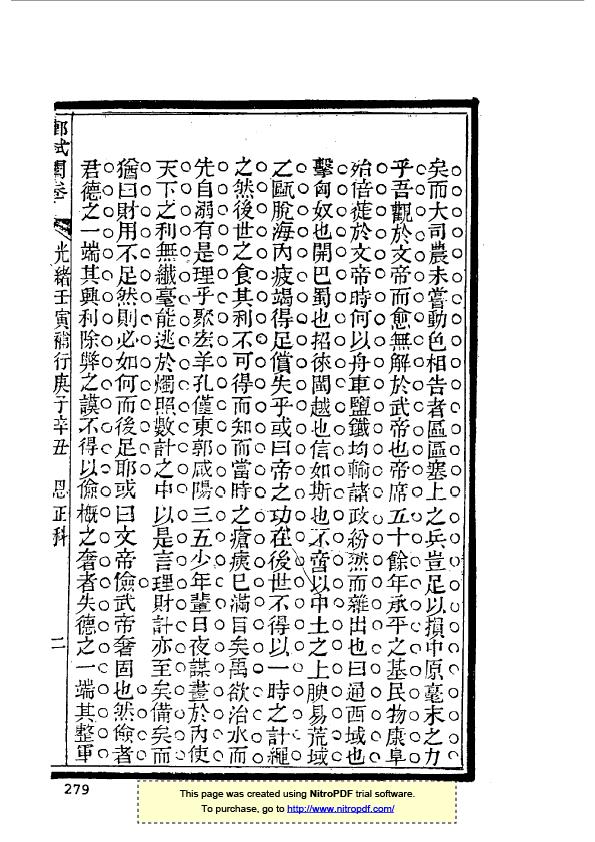 矣而大司農未嘗動色相告者區區塞上之兵豈足以損中原毫末之力
乎吾觀於文帝而愈無解於武帝也帝席五十餘年承平之基民物康阜
始倍蓰於文帝時何以舟車鹽鐵均輸諸政紛然而雜出也曰通西域也
擊匈奴也開巴蜀也招徠閩越也信如斯也不啻以中土之上腴易荒域
之甌脫海內疲竭得足償失乎或曰帝之功在後世不得以一時之計繩
之然後世之食其利不可得而知而當時之瘡痍已滿目矣禹欲治水而
先自溺有是理乎聚桑羊孔僅東郭咸陽三五少年輩日夜謀畫於內使
天下之利無纖毫能逃於燭照數計之中以是言理財計亦至矣備矣而
猶曰財用不足然則必如何而後足耶或曰文帝儉武帝奢固也然儉者
君德之一端其興利除弊之謨不得以儉概之奢者失德之一端其整軍
鄉試闈卷 光緒壬寅補行庚子辛丑 恩正科 二
279
This page was created using NitroPDF trial software.
To purchase, go to http://www.nitropdf.com/